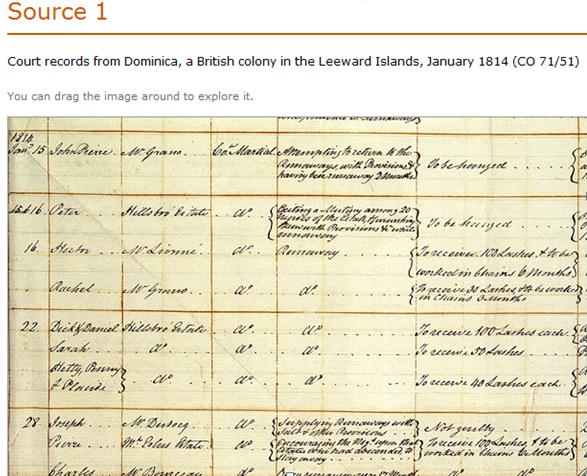 Source 1
Court records from Dominica, a British colony in the Leeward Islands, January 1814 (CO 71/51)
You can drag the image around to explore it.
1814
Jany. 15 John Pierre. Mr Grano. Cot. Martial. Attempting to return to the
Runaways, with Provisions &
having been runaway 2 Months
To be hanged
15 & 16. Peter Hillsbro' Estate do. Exciting a Mutiny among 20
runaway
To be hanged
16. Hector Mr Lionné. do. Runaway To receive 100 Lashes, & to be
worked in Chains 6 Months
Rachel Mr Grano do. do. To receive 30 Lashes, & to be worked
in Chains 3 Months
22. Dick & Daniel Hillsbro' Estate do. do. To receive 100 Lashes each
Sarah do. do. To receive 50 Lashes
Hetty, Penny
& Placide do. do. To receive 40 Lashes each
28. Joseph Mr do. Supplying Runaways with
Salt & other Provisions Not guilty
Pierre Estate do. Encouraging the
To receive 100 Lashes, & to be
worked in Chains 6 Months
Charles Mr